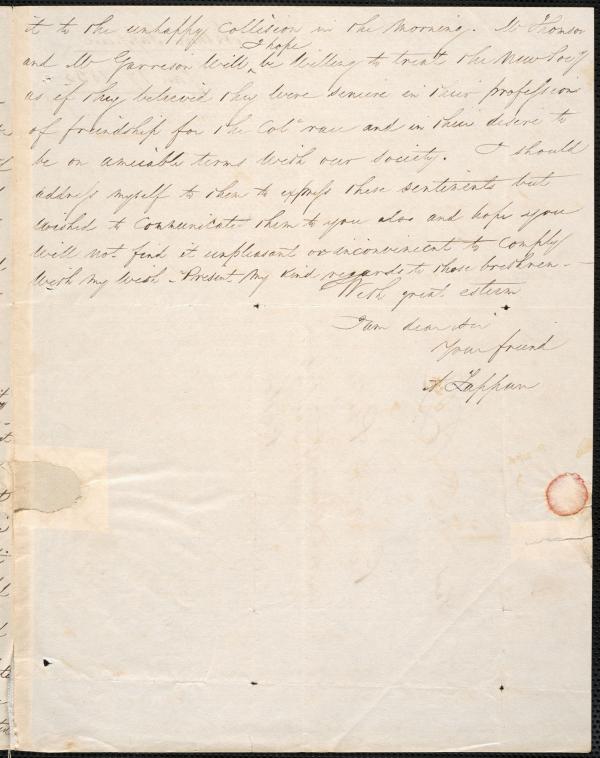 it to the unhappy Collision in the morning. Mr Thomson
I hope
and Mr Garrison will be willing to treat the New Socy
as if they believed they were sincere in their professions
of friendship for the Cold race and in their desire to
be on amicable terms with our society. I should
address myself to them to express these sentiments but
wished to Communicate them to you also and hope you
will not find it unpleasant or inconvenient to Comply
with my wish - Present my kind regards to those brethren -
With great esteem
I am dear sir
Your friend
A Tappan